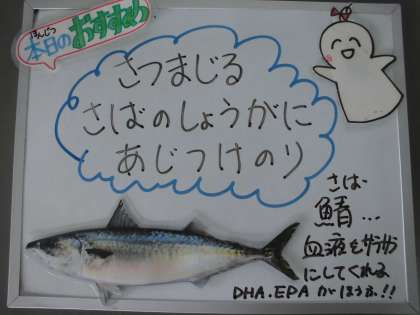 ほんじつ
本日の おすすめ
さつまじる
さばのしょうがに
あじつけのり
さば
鯖…
血液をサラサラ
にしてくれる
DHA.EPAがほうふ!!